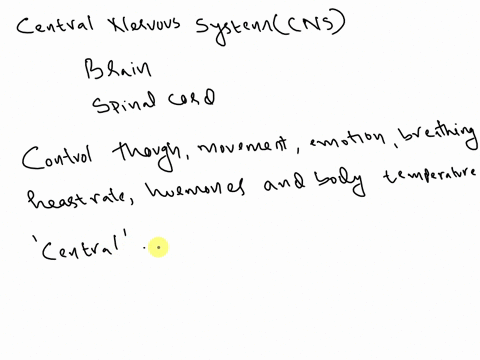 Central Nervous System (CNS)
Brain
Spinal cord
Control though, movement, emotion, breathing
heart rate, hormones and body temperature
'Central'